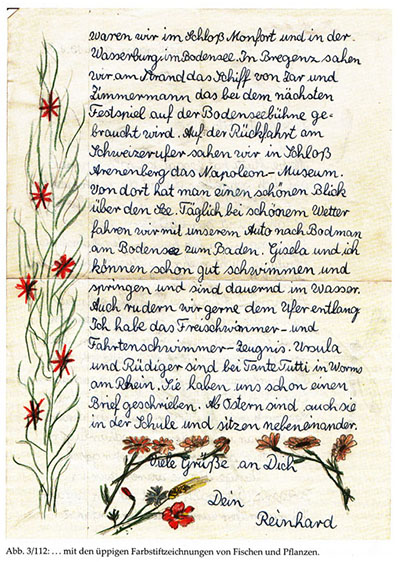 waren wir im Schloß Monfort und in der
Wasserburg im Bodensee. In Bregenz sahen
wir am Strand das Schiff von Zar und
Zimmermann das bei dem nächsten
Festspiel auf der Bodenseebühne ge-
braucht wird. Auf der Rückfahrt am
Schweizerufer sahen wir in Schloß
Arenenberg das Napoleon-Museum.
Von dort hat man einen schönen Blick
über den See. Täglich bei schönem Wetter
fahren wir mit unserem Auto nach Bodman
am Bodensee zum Baden. Gisela und ich
können schon gut schwimmen und
springen und sind dauernd im Wasser.
Auch rudern wir gerne dem Ufer entlang
Ich habe das Freischwimmer- und
Fahrtenschwimmer-Zeugnis. Ursula
und Rüdiger sind bei Tante Tutti in Worms
am Rhein. Sie haben uns schon einen
Brief geschrieben. Ab Ostern sind auch sie
in der Schule und sitzen nebeneinander.
Viele Grüße an Dich
Dein
Reinhard
Abb. 3/112: … mit den üppigen Farbstiftzeichnungen von Fischen und Pflanzen.